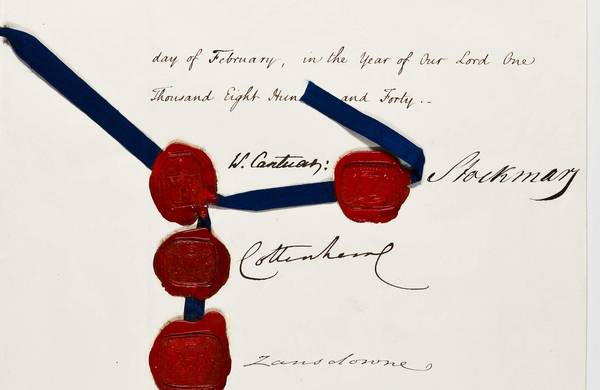 day of February, in the Year of Our Lord One
Thousand Eight Hun and Forty..
W. Cantuar:
Stockmar
Cottenham
Lansdowne